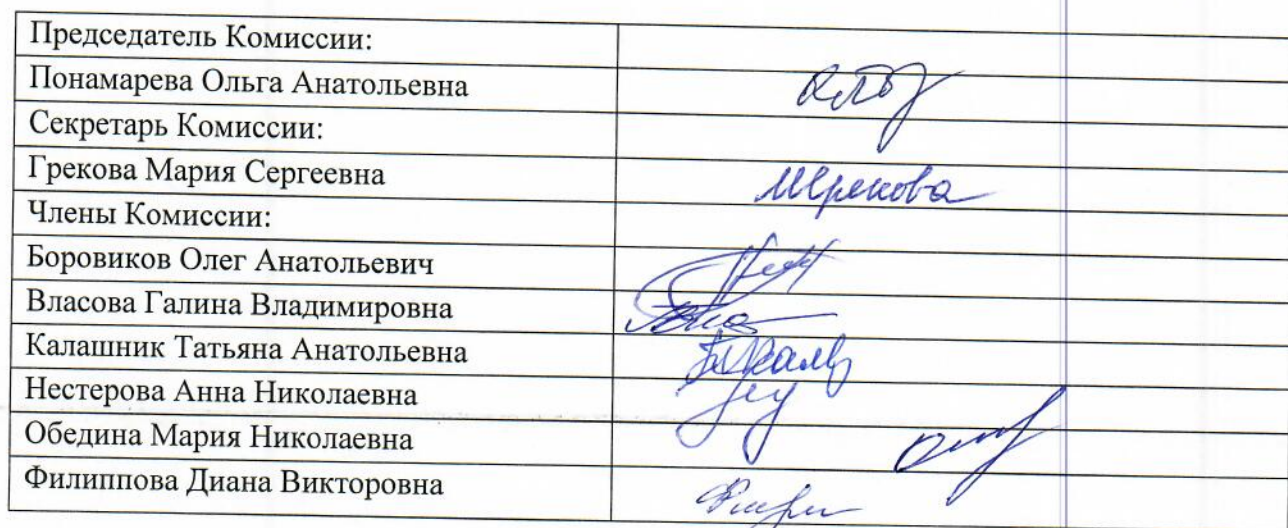 Председатель Комиссии:
Понамарева Ольга Анатольевна
Секретарь Комиссии:
Грекова Мария Сергеевна
МГрекова
Члены Комиссии:
Боровиков Олег Анатольевич
Власова Галина Владимировна
Калашник Татьяна Анатольевна
Нестерова Анна Николаевна
Обедина Мария Николаевна
Филиппова Диана Викторовна